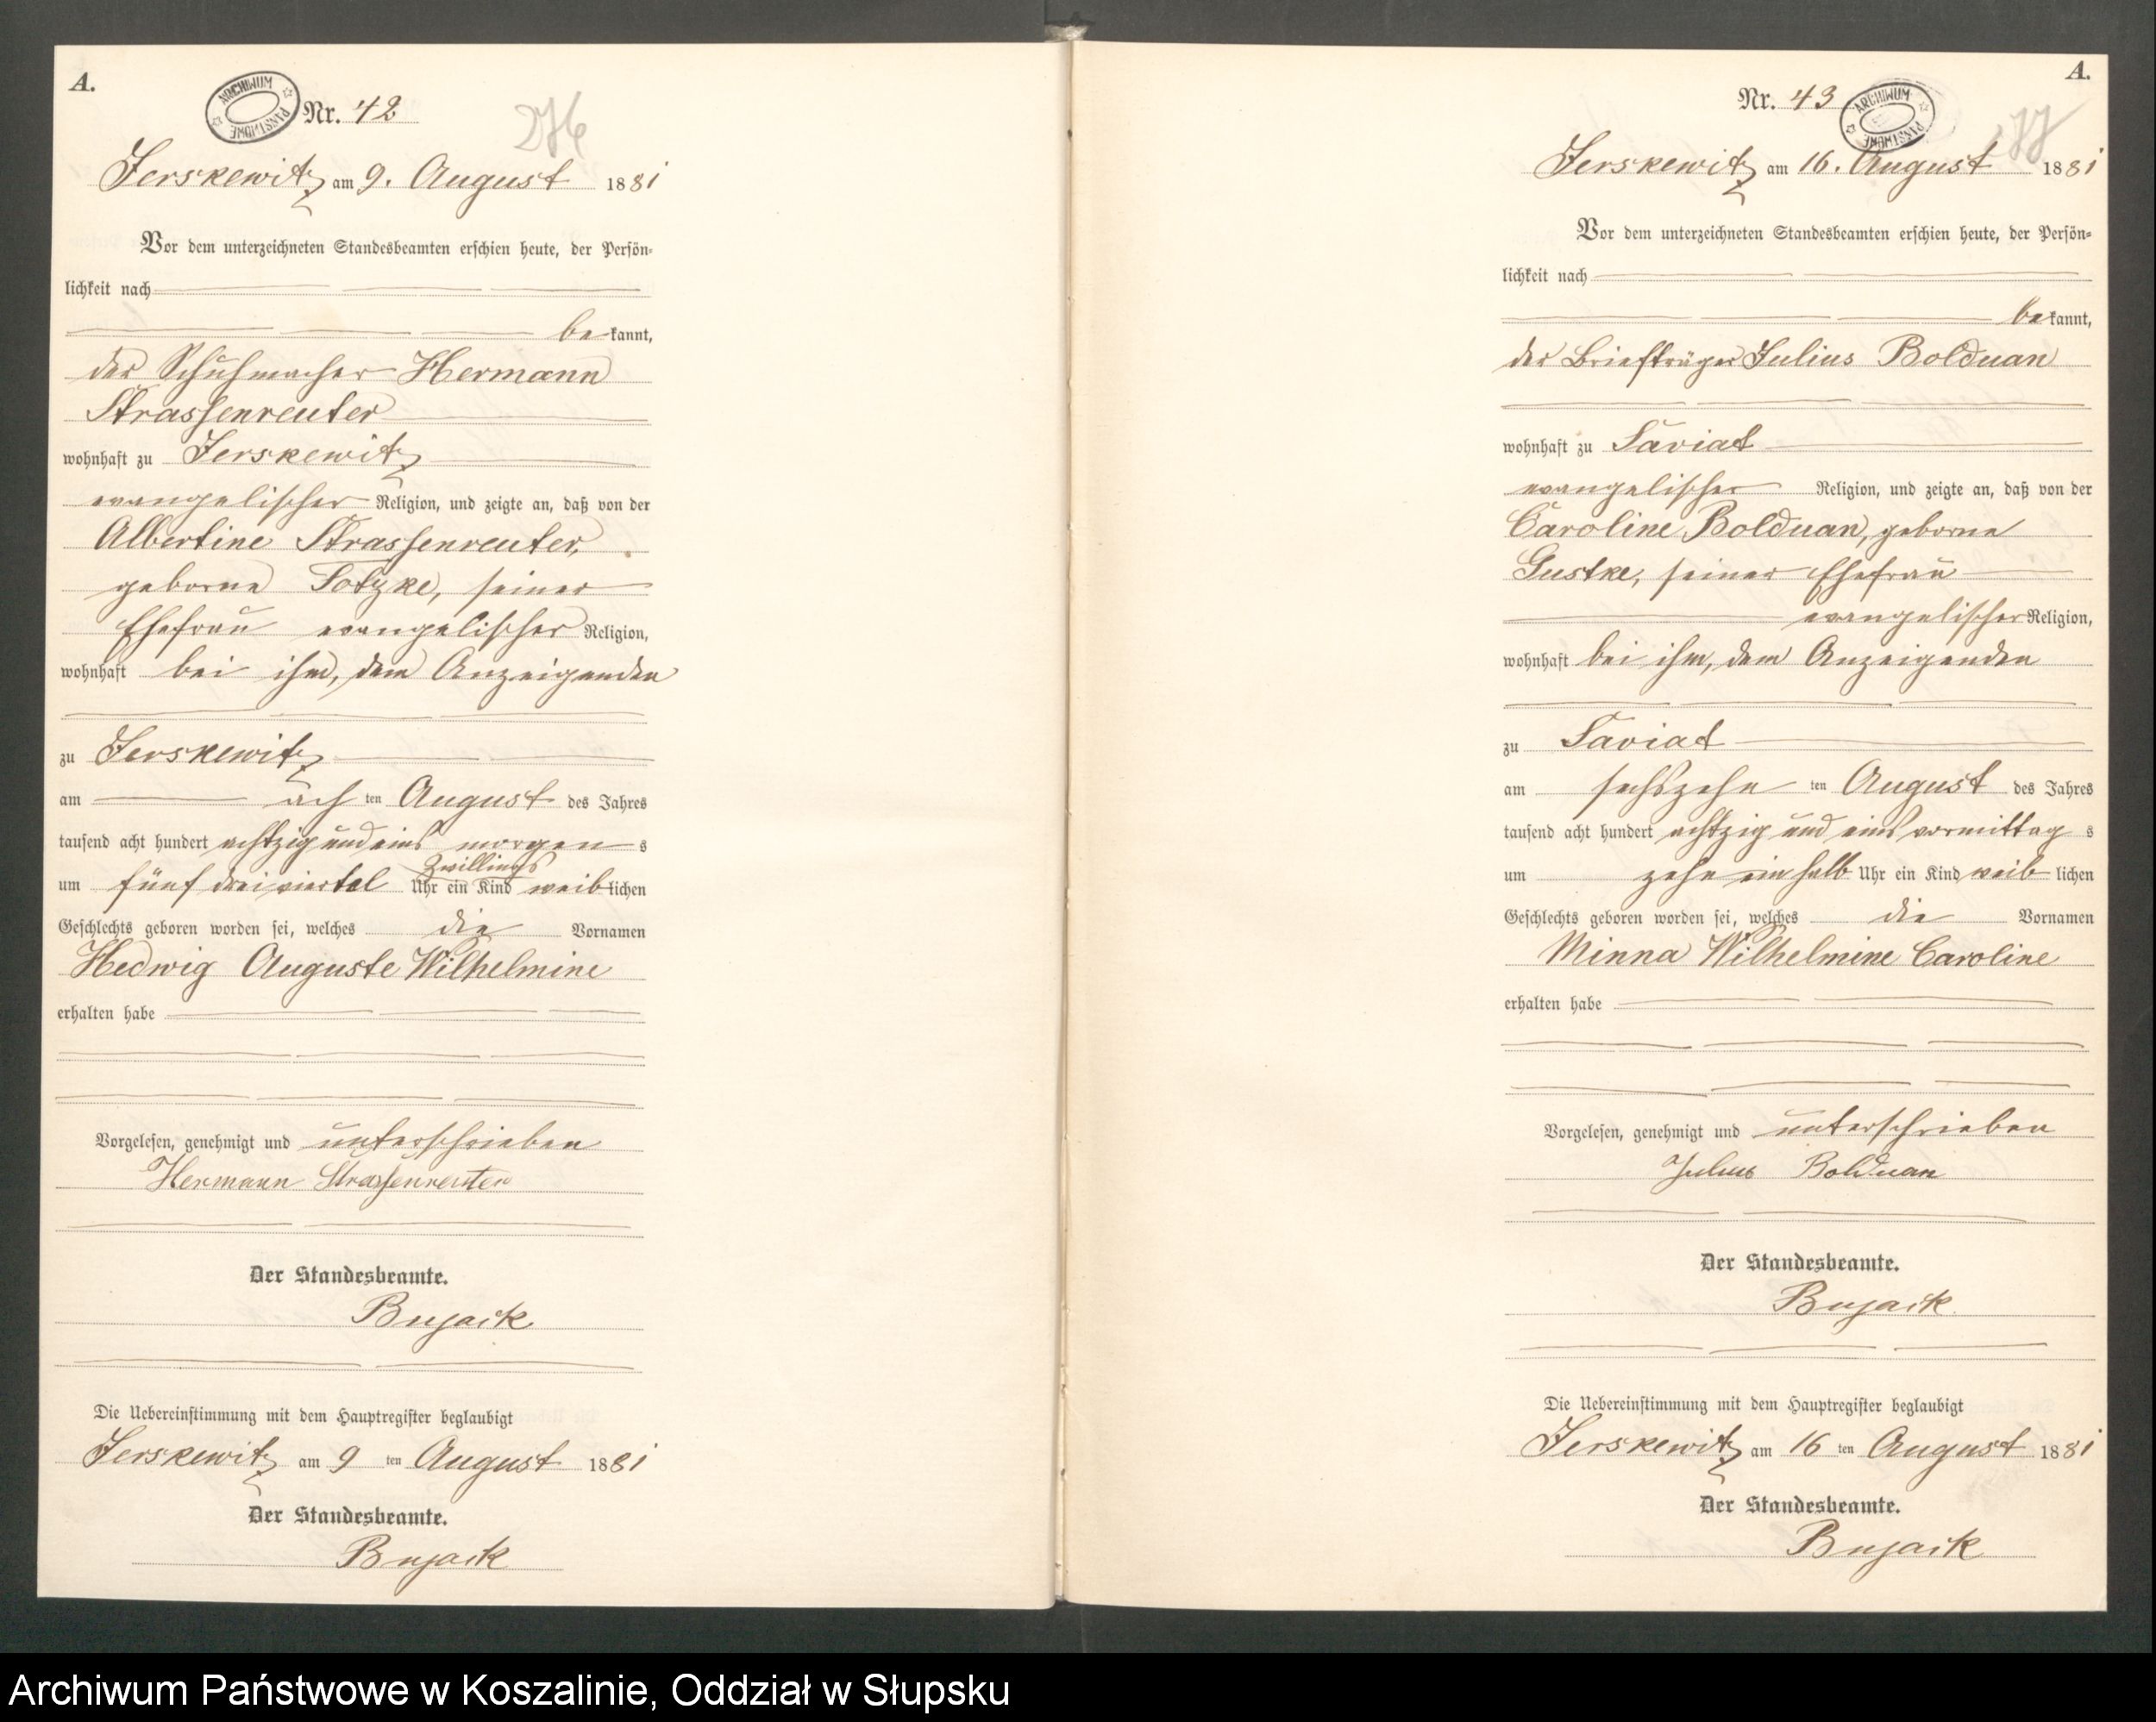 A.
ARCHIWUM PAŃSTWOWE
Nr. 42
Jerskewitz am 9. August 1881
Vor dem unterzeichneten Standesbeamten erschien heute, der Persön-
lichkeit nach
bekannt,
der Schuhmacher Hermann
Strassenreuter
wohnhaft zu Jerskewitz
evangelischer Religion, und zeigte an, daß von der
Albertine Strassenreuter,
geborne Totzke, seiner
Ehefrau evangelischer Religion,
wohnhaft bei ihm, dem Anzeigenden
zu Jerskewitz
am ach ten August des Jahres
tausend acht hundert achtzig und eins morgens
Zwillings
um fünf dreiviertel Uhr ein Kind weiblichen
Geschlechts geboren worden sei, welches die Vornamen
Hedwig Auguste Wilhelmine
erhalten habe
Vorgelesen, genehmigt und unterschrieben
Hermann Strassenreuter
Der Standesbeamte.
Bujack
Die Uebereinstimmung mit dem Hauptregister beglaubigt
Jerskewitz am 9 ten August 1881
Der Standesbeamte.
Bujack
A.
Nr. 43
ARCHIWUM PAŃSTWOWE
Jerskewitz am 16. August 1881
Vor dem unterzeichneten Standesbeamten erschien heute, der Persön-
lichkeit nach
bekannt,
der Briefträger Julius Bolduan
wohnhaft zu Saviat
evangelischer Religion, und zeigte an, daß von der
Caroline Bolduan, geborne
Gustke, seiner Ehefrau
evangelischer Religion,
wohnhaft bei ihm, dem Anzeigenden
zu Saviat
am sechszehn ten August des Jahres
tausend acht hundert achtzig und eins vormittags
um zehn ein halb Uhr ein Kind weiblichen
Geschlechts geboren worden sei, welches die Vornamen
Minna Wilhelmine Caroline
erhalten habe
Vorgelesen, genehmigt und unterschrieben
Julius Bolduan
Der Standesbeamte.
Bujack
Die Uebereinstimmung mit dem Hauptregister beglaubigt
Jerskewitz am 16 ten August 1881
Der Standesbeamte.
Bujack
Archiwum Państwowe w Koszalinie, Oddział w Słupsku